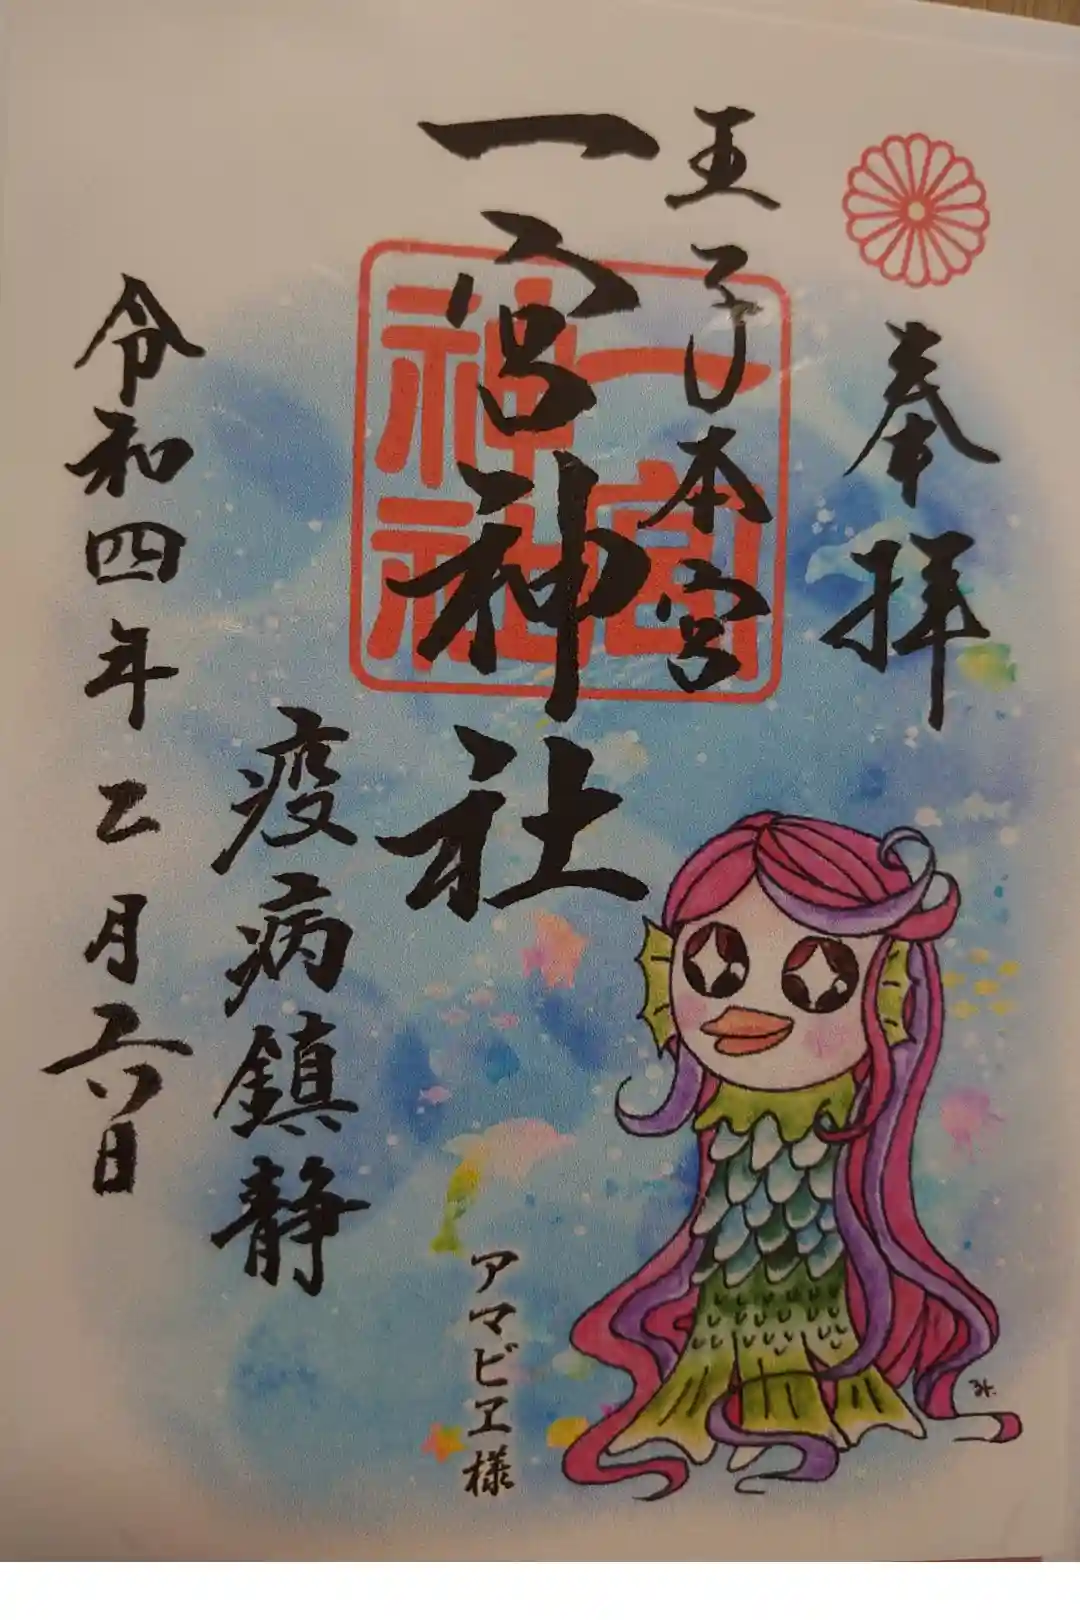 奉拝
王子本宮
一宮神社
一宮
神社
疫病鎮静
アマビヱ様
令和四年乙月六日